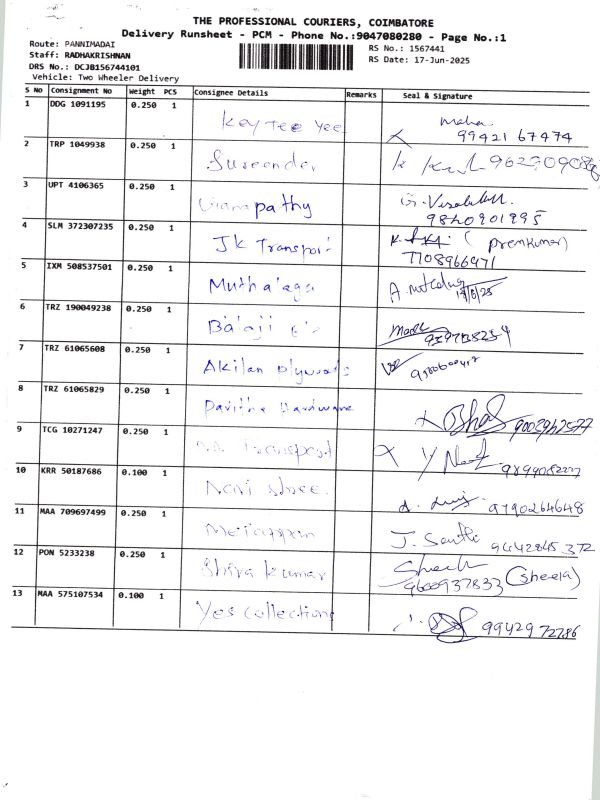 THE PROFESSIONAL COURIERS, COIMBATORE
Delivery Runsheet - PCM - Phone No.:9047080280 - Page No.:1
Route: PANNIMADAI
Staff: RADHAKRISHNAN
DRS No.: DCJB156744101
Vehicle: Two Wheeler Delivery
RS No.: 1567441
RS Date: 17-Jun-2025
S No Consignment No Weight PCS Consignee Details Remarks Seal & Signature
1 DDG 1091195 0.250 1 Key Tee Yee Maha 99421 67474
2 TRP 1049938 0.250 1 Surender
3 UPT 4106365 0.250 1 9840901995
4 SLM 372307235 0.250 1 JK Transport (Premkumar) 7708966971
5 IXM 508537501 0.250 1 17/6/25
6 TRZ 190049238 0.250 1 Balaji
7 TRZ 61065608 0.250 1 Akilan Plywoods
8 TRZ 61065829 0.250 1 Pavitha Hardware
9 TCG 10271247 0.250 1 Transport
10 KRR 50187686 0.100 1 Store 9790264648
11 MAA 709697499 0.250 1 J. Santhi 9442845372
12 PON 5233238 0.250 1 Shiva Kumar 9600937833 (Sheela)
13 MAA 575107534 0.100 1 Yes Collections 9942972786